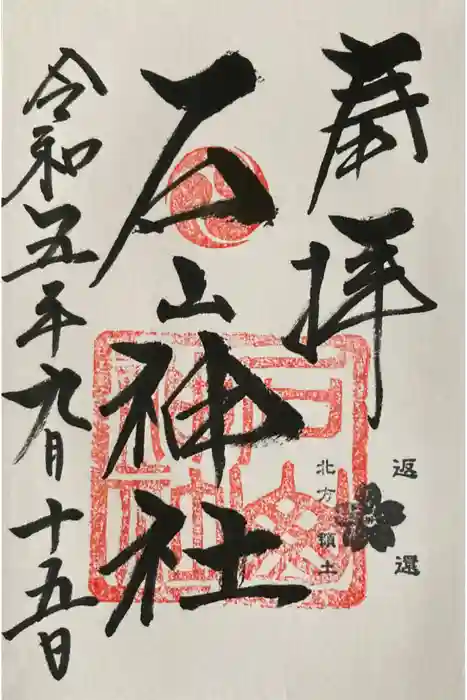 奉拝
石山神社
令和五年九月十五日
返還
北方領土
石山神社